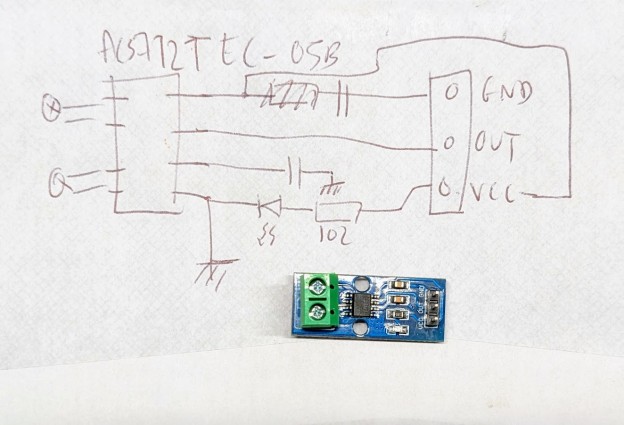 ACS712T EC-05B
GND
OUT
VCC
102